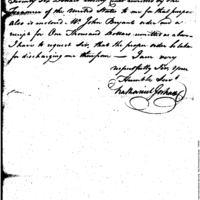 Twenty Six Dollars Ninety Cents remitted by the
Treasurer of the United States to me for that purpose
also is inclosed Mr. John Bryant's order and a
receipt for One Thousand Dollars remitted as above
I have to request Sir, that the proper order be taken
for discharging me therefrom — I am very
respectfully Sir, your
Humble Servt
Nathaniel Gorham